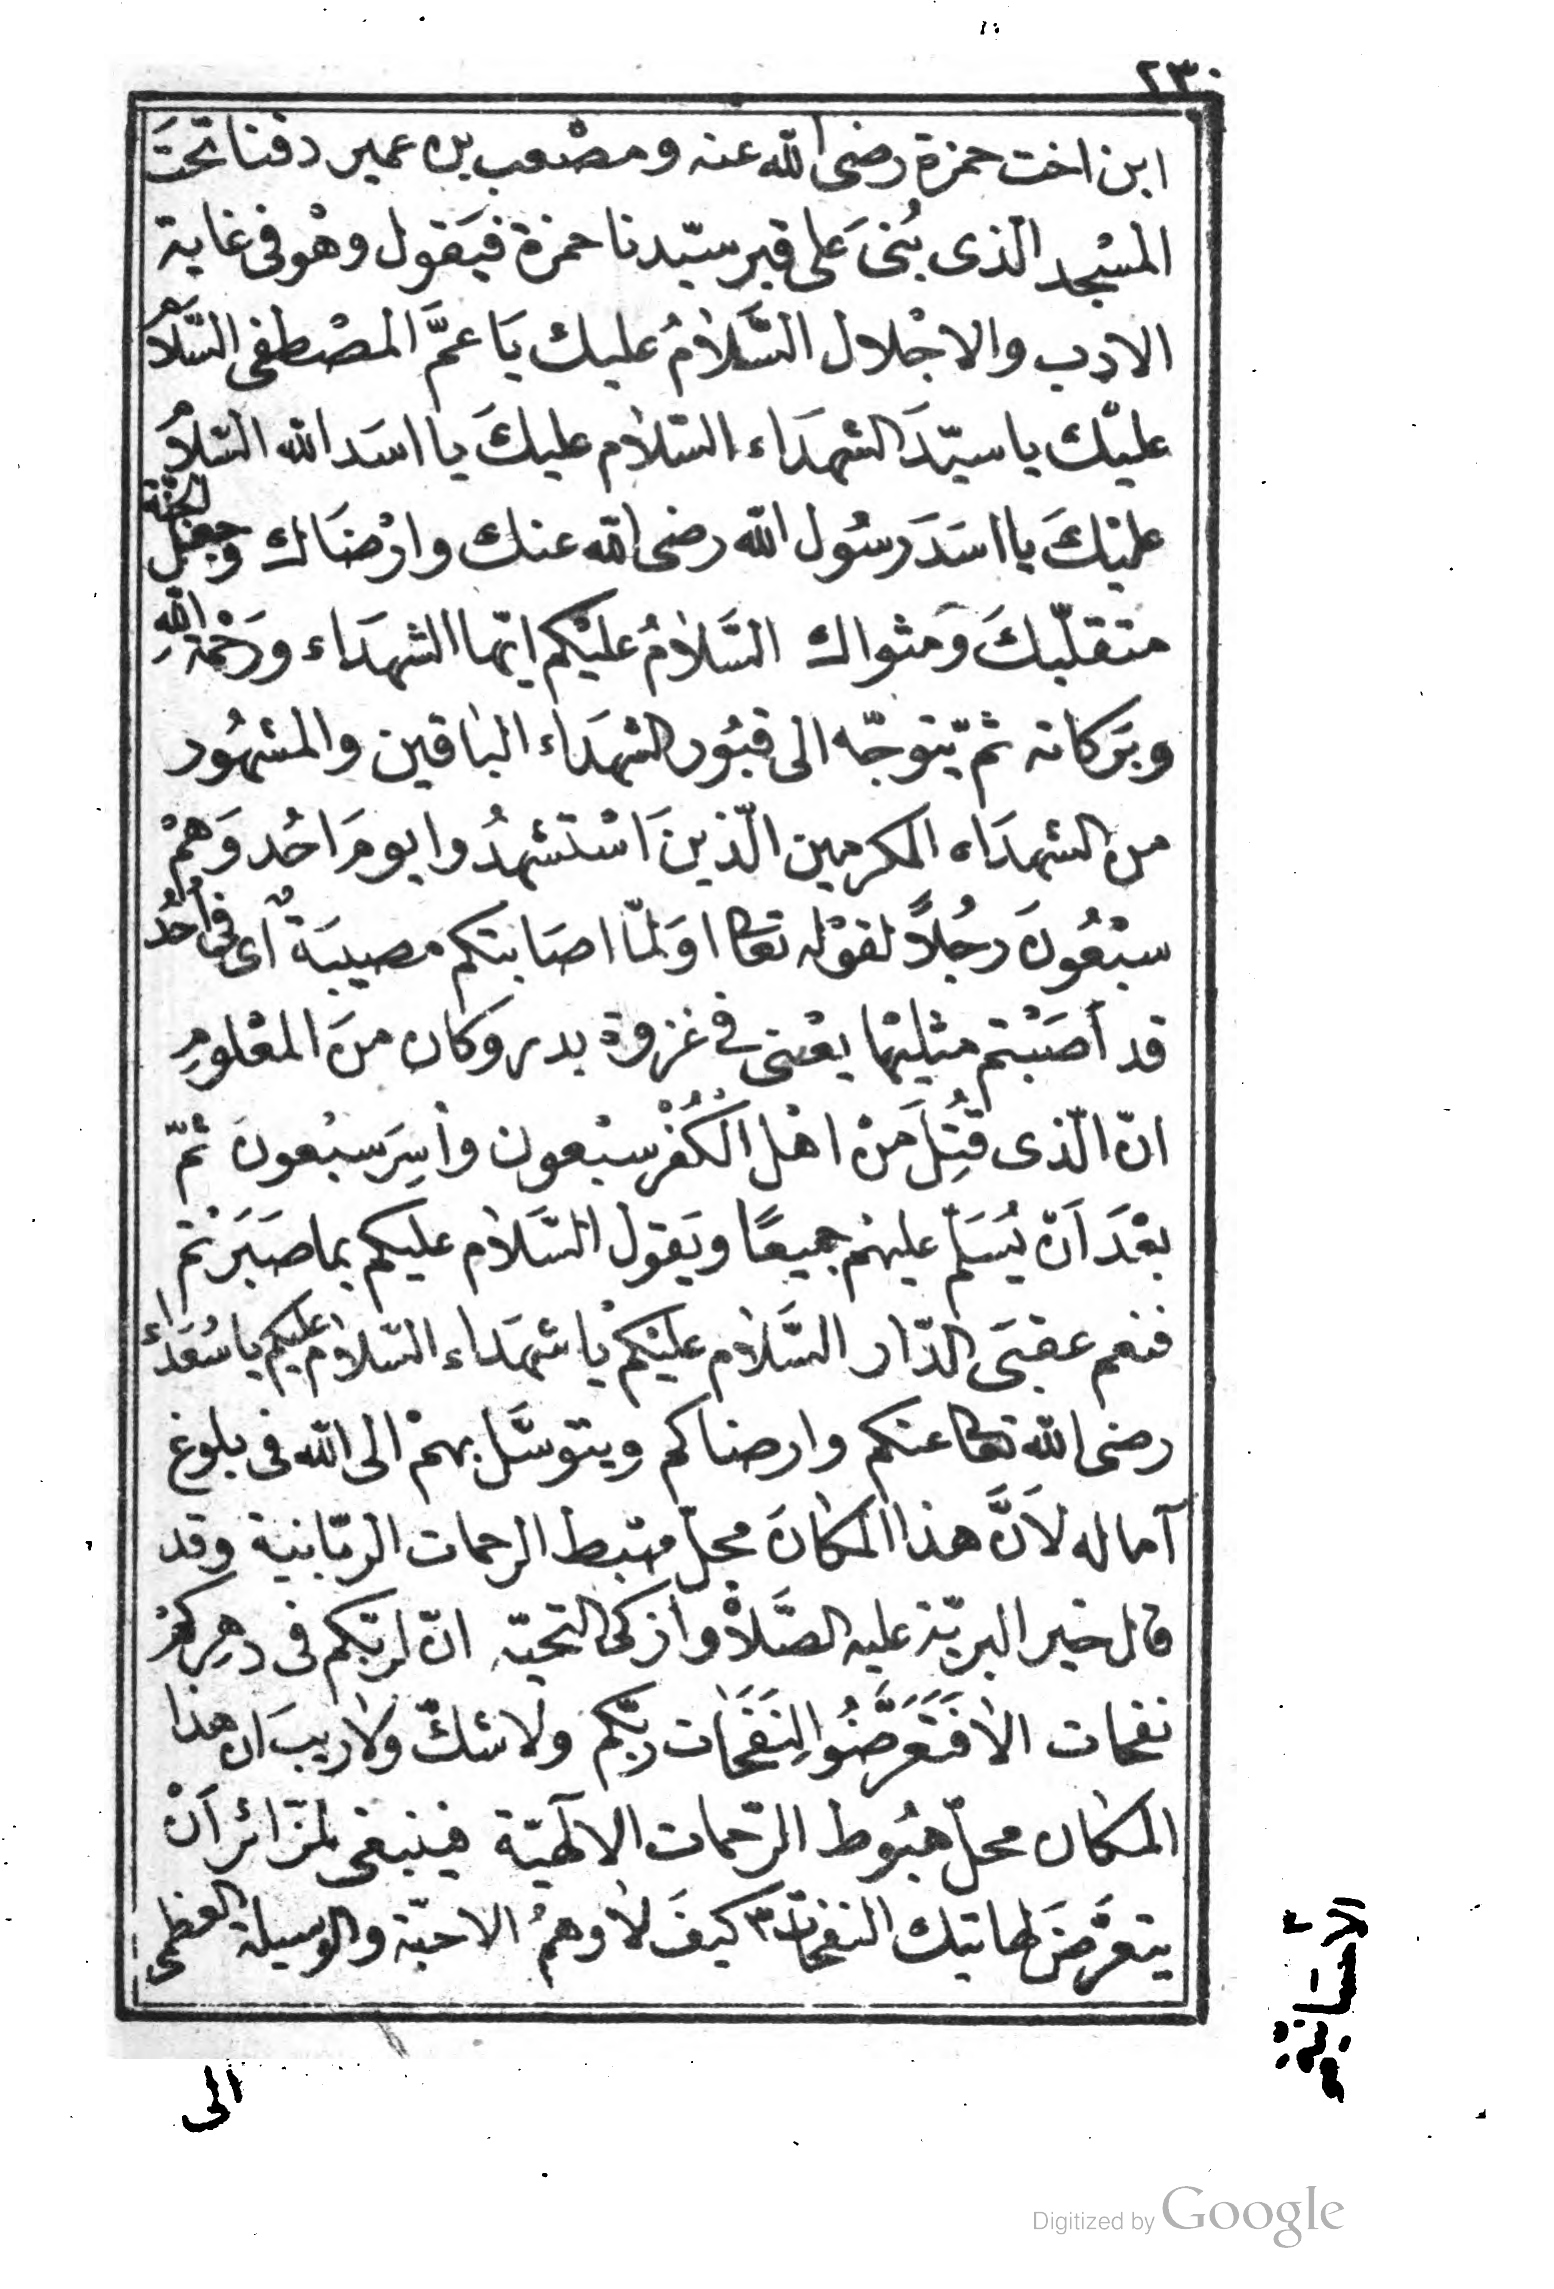 ٢٣٠
ابن اخت حمزة رضى الله عنه ومصْعب بن عمير دفنا تحتَ
المسْجد الّذى بُنىَ على قبر سيّدنا حمزة فيَقول وهْو فى غاية
الادب والاجْلال السَّلامُ عليك يَا عمَّ المصْطفى السَّلامُ
عليْك يا سيّدَ الشهدَاء السّلام عليكَ يا اسَد الله السّلامُ
عليْكَ يا اسَدَ رسُول الله رضى الله عنك وارْضَاك وجعَل الجنّة
متقلّبكَ وَمثواك السَّلامُ عليْكم ايّها الشهدَاء ورَحْمة اللهِ
وبَركاته ثم يّتوجّه الى قبُور الشهَداء الباقين والمشهُور
من الشهدَاء المكرمين الّذينَ اسْتشهدُوا يومَ احُد وَهمْ
سبْعُونَ رجُلاً لقوْله تعالى اوَلمّا اصَابتكم مصيبَةٌ اى فى اُحُد
قد أصَبْتم مثليْها يعْنى فى غزوة بدر وكان منَ المعْلومِ
انّ الّذى قُتِلَ مَنْ اهْل الكُفْر سبْعون وأسِرَ سبْعونَ ثمّ
بعْدَ اَنْ يُسَلّم عليهْم جميعًا ويَقول السَّلام عليكم بما صَبَرْتم
فنعم عقبَى الدّار السَّلام عليْكمْ يا شهَداء السّلام عليكم يا سُعَدَاء
رضى الله تعالى عنكم وارضاكم ويتوسَّل بهمْ الى الله فى بلوغ
آماله لاَنَّ هذا المكانَ محلّ مهبط الرحمات الربّانية وقد
قال خير البريّة عليه الصَّلاةْ وأزكى التحيّه انّ لربّكم فى دهرِكمْ
نفحات الا فَتَعَرَّضُوا لِنَفَحَات ربّكم ولا شكّ ولا ريبَ ان هذا
المكان محلّ هبُوط الرّحمات الالٓهيّة فينبغى للزّائر اَنْ
يتعَرَّضَ لهاتيك النفحات ٣ كيفَ لا وهمُ الاحبّة والوسيلة العظمى
الى
الاحسانيّة
Digitized by Google